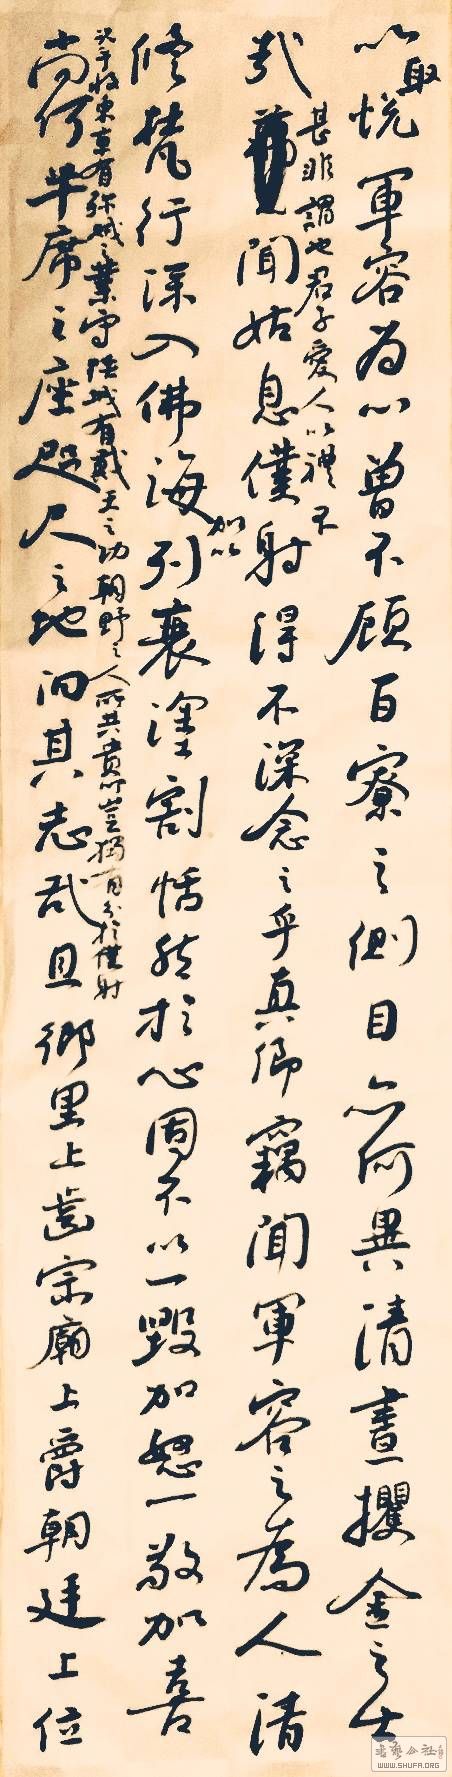 以取悅軍容為心曾不顧百寮之側目亦何異清晝攫金之士
哉
甚非謂也君子愛人以禮不
聞姑息僕射得不深念之乎真卿竊聞軍容之為人清
脩梵行深入佛海
加以
利衰塗割恬然於心固不以一毀加怒一敬加喜
況乎收東京有殄賊之業守陝城有戴天之功朝野之人所共貴仰豈獨有分於僕射
尚何半席之座咫尺之地汩其志哉且鄉里上齒宗廟上爵朝廷上位
書藝公社
WWW.SHUFA.ORG